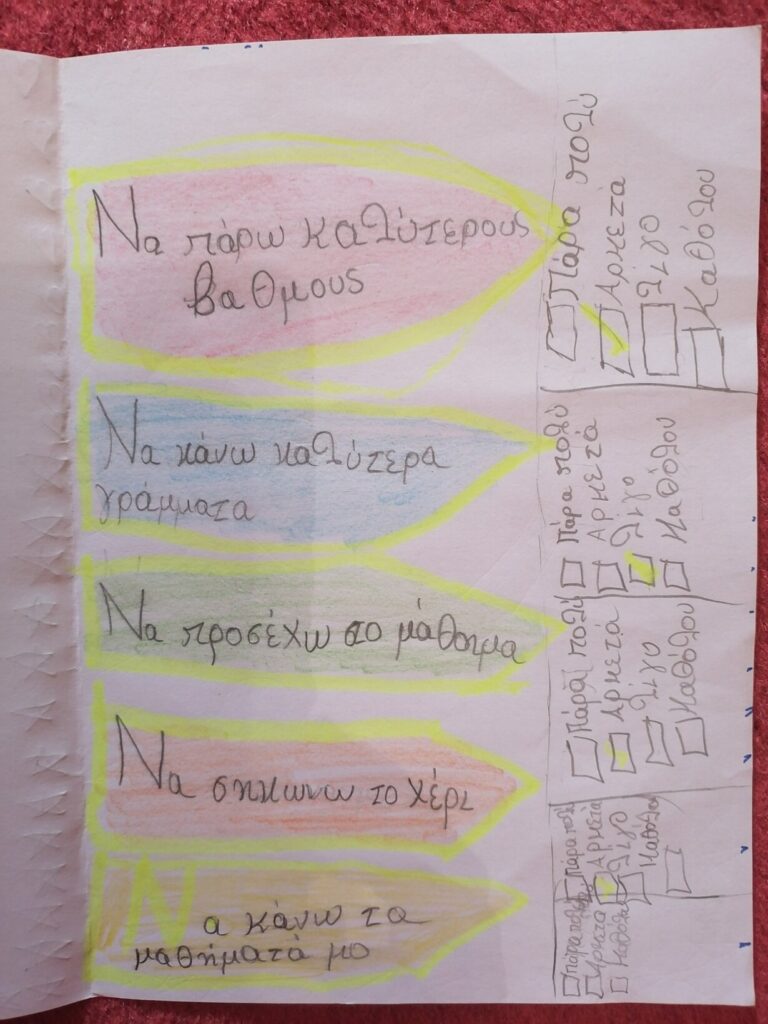 Να πάρω καλύτερους
βαθμους
Πάρα πολύ
Αρκετά
Λιγο
Καθόλου
Να κάνω καλύτερα
γράμματα
Πάρα πολύ
Αρκετά
Λιγο
Καθόλου
Να προσέχω στο μάθημα
Πάρα πολύ
Αρκετά
Λιγο
Καθόλου
Να σηκωνω το χέρι
Πάρα πολύ
Αρκετά
Λιγο
Καθόλου
Να κάνω τα
μαθήματά μο
Πάρα πολύ
Αρκετά
Καθόλου